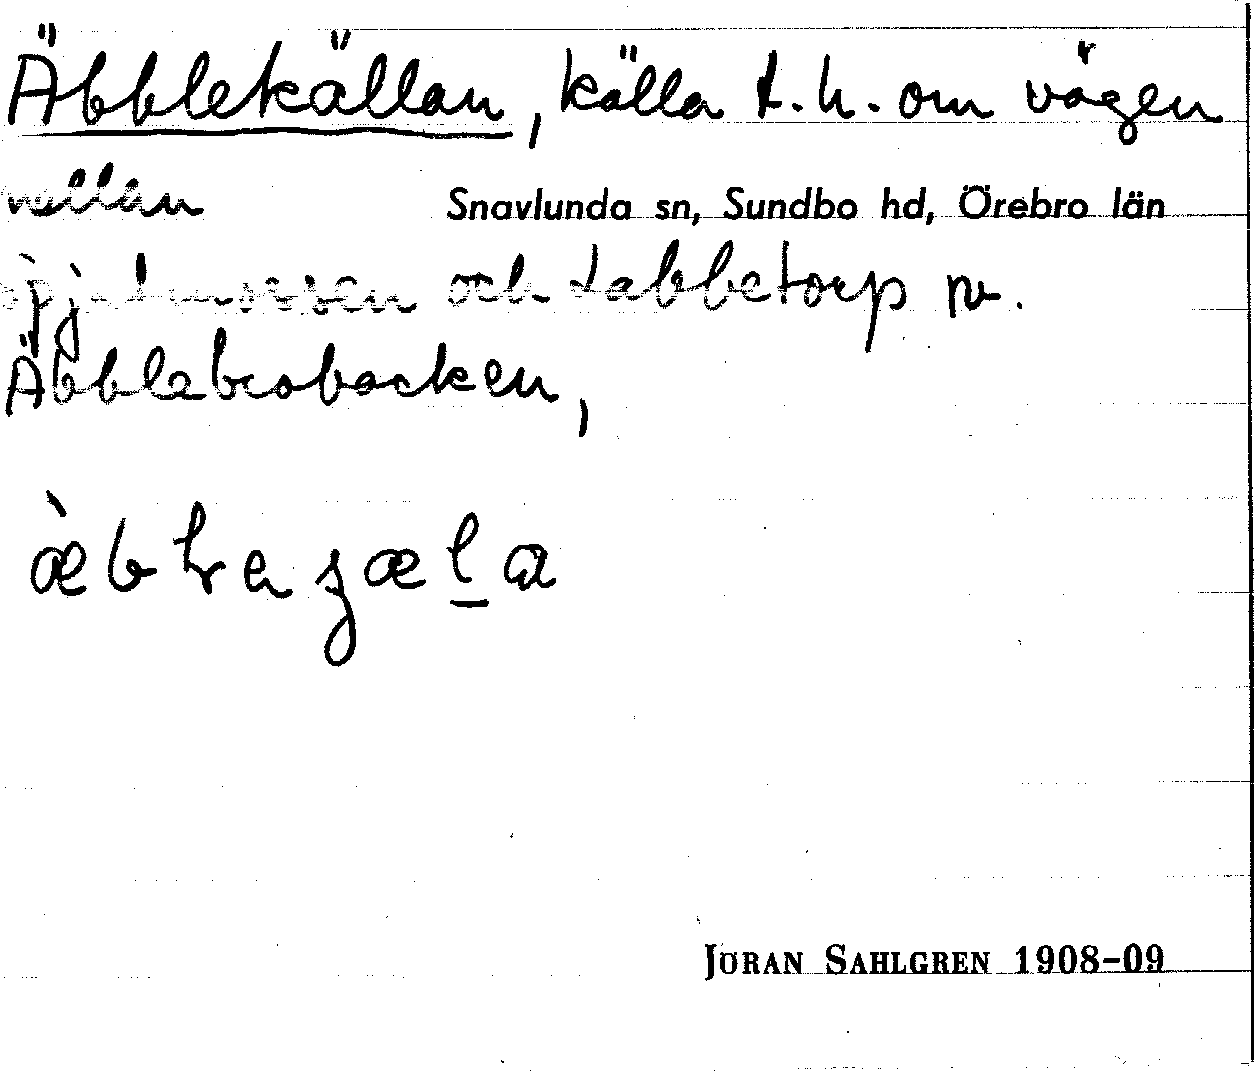 Äbblekällan, källa t.h. om vägen
mellan
Snavlunda sn, Sundbo hd, Örebro län
och Labbetorp nv.
Äbblebrobacken,
JÖRAN SAHLGREN 1908-09